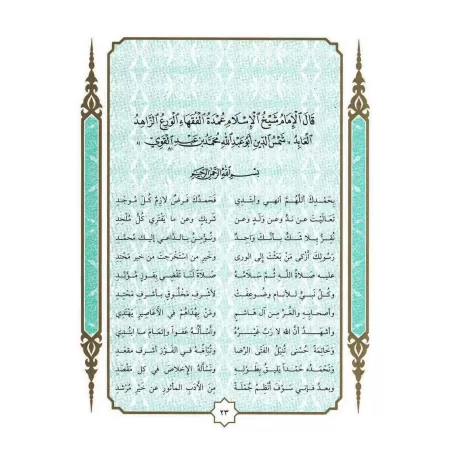 قَالَ الْإِمَامُ شَيْخُ الْإِسْلَامِ عُمْدَةُ الْفُقَهَاءِ الْوَرِعُ الزَّاهِدُ
الْعَابِدُ « شَمْسُ الدِّينِ أَبُو عَبْدِ اللهِ مُحَمَّدُ بْنُ عَبْدِ الْقَوِيِّ »
بِسْمِ اللهِ الرَّحْمٰنِ الرَّحِيمِ
بِحَمْدِكَ اللَّهُمَّ أُنْهِي وَأَبْتَدِي فَحَمْدُكَ فَرْضٌ لَازِمٌ كُلَّ مُوجَدِ
تَعَالَيْتَ عَنْ نِدٍّ وَعَنْ وَلَدٍ وَعَنْ شَرِيكٍ وَعَنْ مَا يَفْتَرِي كُلُّ مُلْحِدِ
نُقِرُّ بِلَا شَكٍّ بِأَنَّكَ وَاحِدٌ وَنُؤْمِنُ بِالدَّاعِي إِلَيْكَ مُحَمَّدِ
رَسُولِكَ أَزْكَى مَنْ بَعَثْتَ إِلَى الوَرَى وَخَيْرِ مَنِ اسْتَخْرَجْتَ مِنْ خَيْرِ مَحْتِدِ
عَلَيْهِ صَلَاةُ اللَّهِ ثُمَّ سَلَامُهُ صَلَاةً لَنَا تَقْضِي بِفَوْزٍ مُؤَبَّدِ
وَكُلِّ نَبِيٍّ لِلْأَنَامِ وَضُوعِفَتْ لِأَشْرَفِ مَخْلُوقٍ بِأَشْرَفِ مَحْتِدِ
وَأَصْحَابِهِ وَالغُرِّ مِنْ آلِ هَاشِمٍ وَمَنْ بِهُدَاهُمْ فِي الأَعَاصِيرِ يَهْتَدِي
وَأَشْهَدُ أَنَّ اللَّهَ لَا رَبَّ غَيْرُهُ وَأَسْأَلُهُ عَفْواً وَإِتْمَامَ مَا ابْتُدِي
وَخَاتِمَةً حُسْنَى تُنِيلُ الفَتَى الرِّضَا وَتُبْلِغُهُ فِي الفَوْزِ أَشْرَفَ مَقْعَدِ
وَنَحْمَدُهُ حَمْداً يَلِيقُ بِطَوْلِهِ وَنَسْأَلُهُ الإِخْلَاصَ فِي كُلِّ مَقْصِدِ
وَبَعْدُ فَإِنِّي سَوْفَ أَنْظِمُ جُمْلَةً مِنَ الأَدَبِ المَأْثُورِ عَنْ خَيْرِ مُرْشِدِ
٢٣